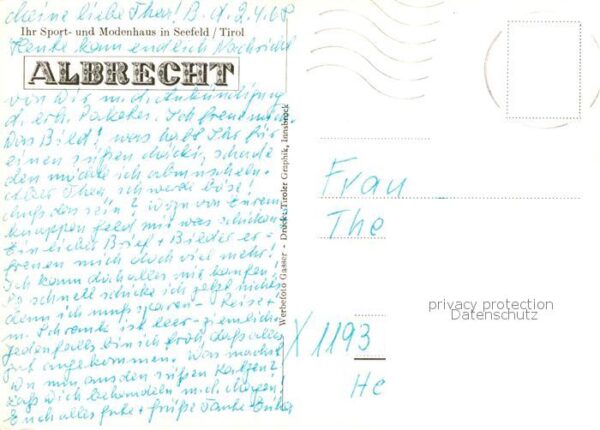 Meine liebe Thea! B. d. 2.4.68
Ihr Sport- und Modenhaus in Seefeld / Tirol
Heute kam endlich Nachricht
ALBRECHT
von Dir m. d. Ankündigung
d. erh. Paketes. Ich freu mich
Das Bild! was habt Ihr für
einen süßen schade
den möchte ich
Aber Thea, ich werde böse!
muß das sein? wozu von Eurem
knappen Geld mir was schicken
Ein lieber Brief + Bilder er-
freuen mich doch viel mehr!
Ich kann doch alles mir kaufen!
So schnell schicke ich jetzt nichts
denn ich muß sparen - Reise +
m. Schranke ist leer - ziemlich
Jedenfalls bin ich froh, daß alles
gut angekommen. Was machst
Du nun aus den süßen Katzen?
Laß Dich behandeln m. d.
Euch alles gute + grüße Tante Erika
Werbefoto Gasser - Druck: Tiroler Graphik, Innsbruck
Frau
The
privacy protection
Datenschutz
X 1193
He